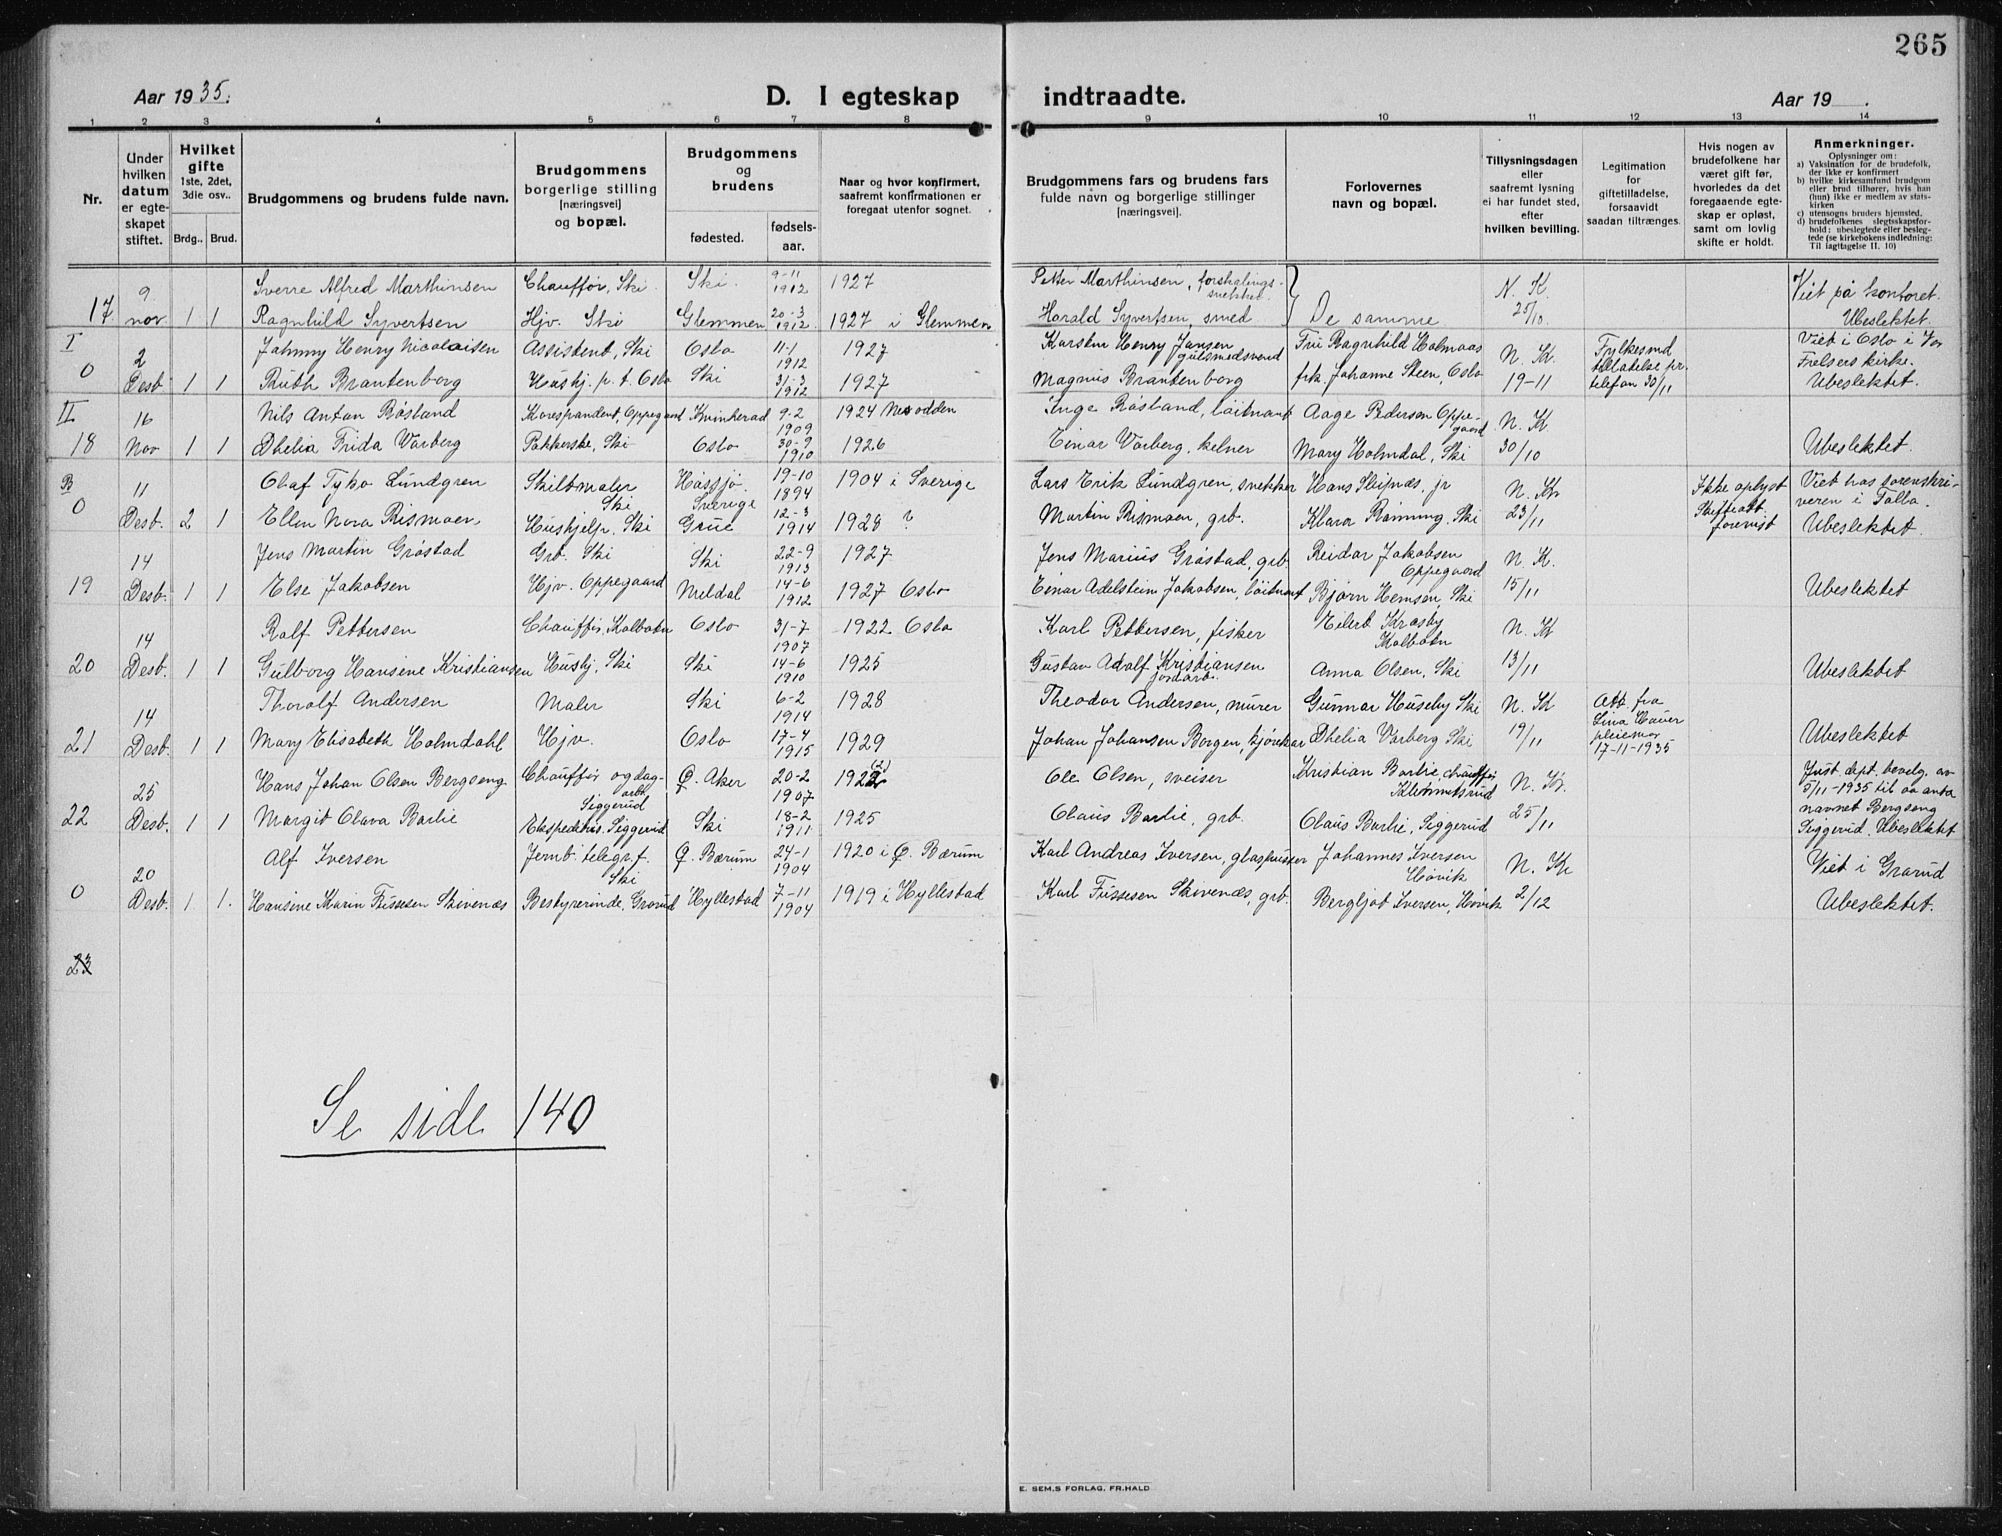 265
Aar 1935.
D. I egteskap indtraadte.
Aar 19 .
1 2 3 4 5 6 7 8 9 10 11 12 13 14
Nr.
Under hvilken datum er egteskapet stiftet.
Hvilket gifte 1ste, 2det, 3die osv..
Brdg.. Brud.
Brudgommens og brudens fulde navn.
Brudgommens borgerlige stilling [næringsvei] og bopæl.
Brudgommens og brudens
fødested. fødsels-aar.
Naar og hvor konfirmert, saafremt konfirmationen er foregaat utenfor sognet.
Brudgommens fars og brudens fars fulde navn og borgerlige stillinger [næringsvei].
Forlovernes navn og bopæl.
Tillysningsdagen eller saafremt lysning ei har fundet sted, efter hvilken bevilling.
Legitimation for giftetilladelse, forsaavidt saadan tiltrænges.
Hvis nogen av brudefolkene har været gift før, hvorledes da det foregaaende egteskap er opløst, samt om lovlig skifte er holdt.
Anmerkninger.
Oplysninger om:
a) Vaksination for de brudefolk, der ikke er konfirmert
b) hvilke kirkesamfund brudgom eller brud tilhører, hvis han (hun) ikke er medlem av statskirken
c) utensogns bruders hjemsted.
d) brudefolkenes slegtsskapsforhold: ubeslegtede eller beslegtede (se kirkebokens indledning: Til iagttagelse II. 10)
9 Sverre Alfred Marthinsen Chauffør, Ski. Ski. 9-11 1912 1927 Petter Marthinsen, forskalingssnekker. N. K. Viet på kontoret.
17 nov 1 1 Ragnhild Syvertsen Hjv. Ski Glemmen 20-3 1912 1927 i Glemmen Harald Syvertsen, smed De samme 25/10. Ubeslektet.
I 2 Johnny Henry Nicolaisen Assistent, Ski Oslo 11-1 1912 1927 Karsten Henry Jansen gulsmedsvend Fru Ragnhild Holmaas N. K. Fylkesmd tillatelse pr. Viet i Oslo i Vor Frelsers kirke.
0 Desb 1 1 Ruth Brantenborg Hushj. p. t. Oslo Ski 31-3 1912 1927 Magnus Brantenborg frk. Johanne Steen, Oslo 19-11 telefon 30/11 Ubeslektet.
II 16 Nils Anton Røsland Korespondent, Oppegaard Kvinherad 9-2 1909 1924 Nesodden Inge Røsland, løitnant Aage Pedersen Oppegaard N. K
18 Nov 1 1 Dhelia Frida Varberg Pakkerske, Ski Oslo 30-9 1910 1926 Einar Varberg, kelner Mary Holmdal, Ski 30/10 Ubeslektet.
B 11 Olaf Tyko Lundgren Skiltmaler Ski Hässjö. Sverige 19-10 1894 1904 i Sverige Lars Erik Lundgren, snekker Hans Sleipnæs, jr N. K. Ikke oplyst Skifteatt. Viet hos sorenskriveren i Follo.
0 Desb. 2 1 Ellen Nora Rismoen Hushjelp, Ski Grue 12-3 1914 1928 ? Martin Rismoen, grb. Klara Rønning, Ski 23/11 forevist Ubeslektet.
14 Jens Martin Grøstad Grb. Ski Ski 22-9 1913 1927 Jens Marius Grøstad, grb Reidar Jakobsen Oppegaard N. K.
19 Desb. 1 1 Else Jakobsen Hjv. Oppegaard Meldal 14-6 1912 1927 Oslo Einar Adelstein Jakobsen, løitnant Bjørn Hemsen Ski 15/11 Ubeslektet
14 Rolf Pettersen Chauffør, Kolbotn Oslo 31-7 1907 1922 Oslo Karl Pettersen, fisker Eilert Kråsby Kolbotn N. K
20 Desb. 1 1 Gulborg Hansine Kristiansen Hushj. Ski Ski 14-6 1910 1925 Gustav Adolf Kristiansen jordarb. Anna Olsen, Ski 13/11 Ubeslektet
14 Thoralf Andersen Maler Ski 6-2 1914 1928 Theodor Andersen, murer Gunnar Huseby Ski N. K Att fra Lina Hauer
21 Desb. 1 1 Mary Elisabeth Holmdahl Hjv. Oslo 17-4 1915 1929 Johan Johansen Borgen, kjørekar Dhelia Varberg Ski 19/11 pleiemor 17-11-1935 Ubeslektet
25 Hans Johan Olsen Bergseng Chauffør og dagarb. Siggerud Ø. Aker 20-2 1907 1922 (2) Ole Olsen, sveiser Kristian Barlie, chauffør Klemmetsrud N. K. Just. dept. bevilg. av 5/11-1935 til aa anta
22 Desb. 1 1 Margit Olava Barlie Ekspeditris, Siggerud Ski 18-2 1911 1925 Claus Barlie, grb. Claus Barlie, Siggerud 25/11 navnet Bergseng Siggerud. Ubeslektet
20 Alf Iversen Jernb. telegr. f. Ski Ø. Bærum 24-1 1904 1920 i Ø. Bærum Karl Andreas Iversen, glaspuster Johannes Iversen Høvik N. K. Viet i Grorud
0 Desb. 1 1. Hansine Karin Fissesen Skivenæs Bestyrerinde, Grorud Hyllestad 7-11 1904 1919 i Hyllestad Karl Fissesen Skivenæs, grb. Bergljot Iversen, Høvik 2/12 Ubeslektet.
23
Se side 140
E. SEM.S FORLAG, FR.HALD